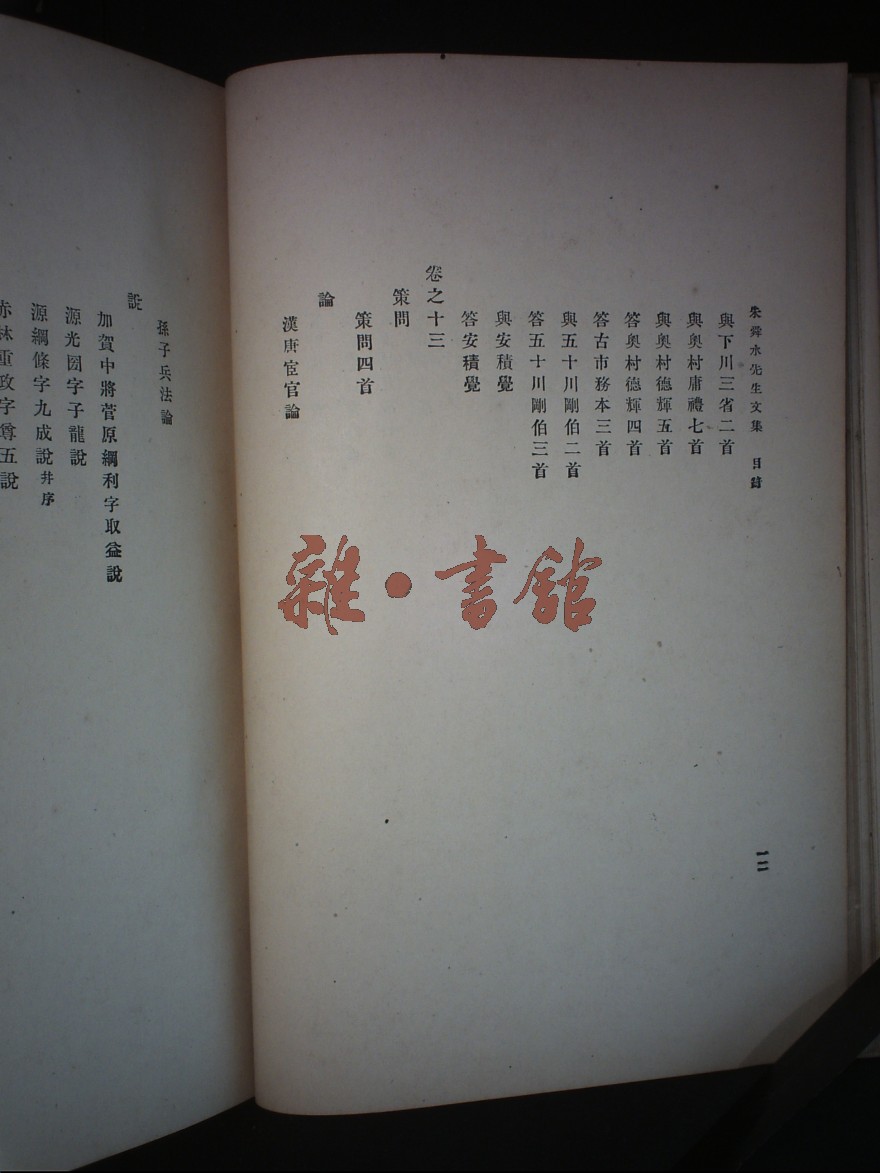 朱舜水先生文集　目錄
與下川三省二首
與奧村庸禮七首
與奧村德輝五首
答奧村德輝四首
答古市務本三首
與五十川剛伯二首
答五十川剛伯三首
與安積覺
答安積覺
卷之十三
策問
策問四首
論
漢唐宦官論
一二
孫子兵法論
說
加賀中將菅原綱利字取益說
源光圀字子龍說
源綱條字九成說并序
林重政字尊五說
雜・書館